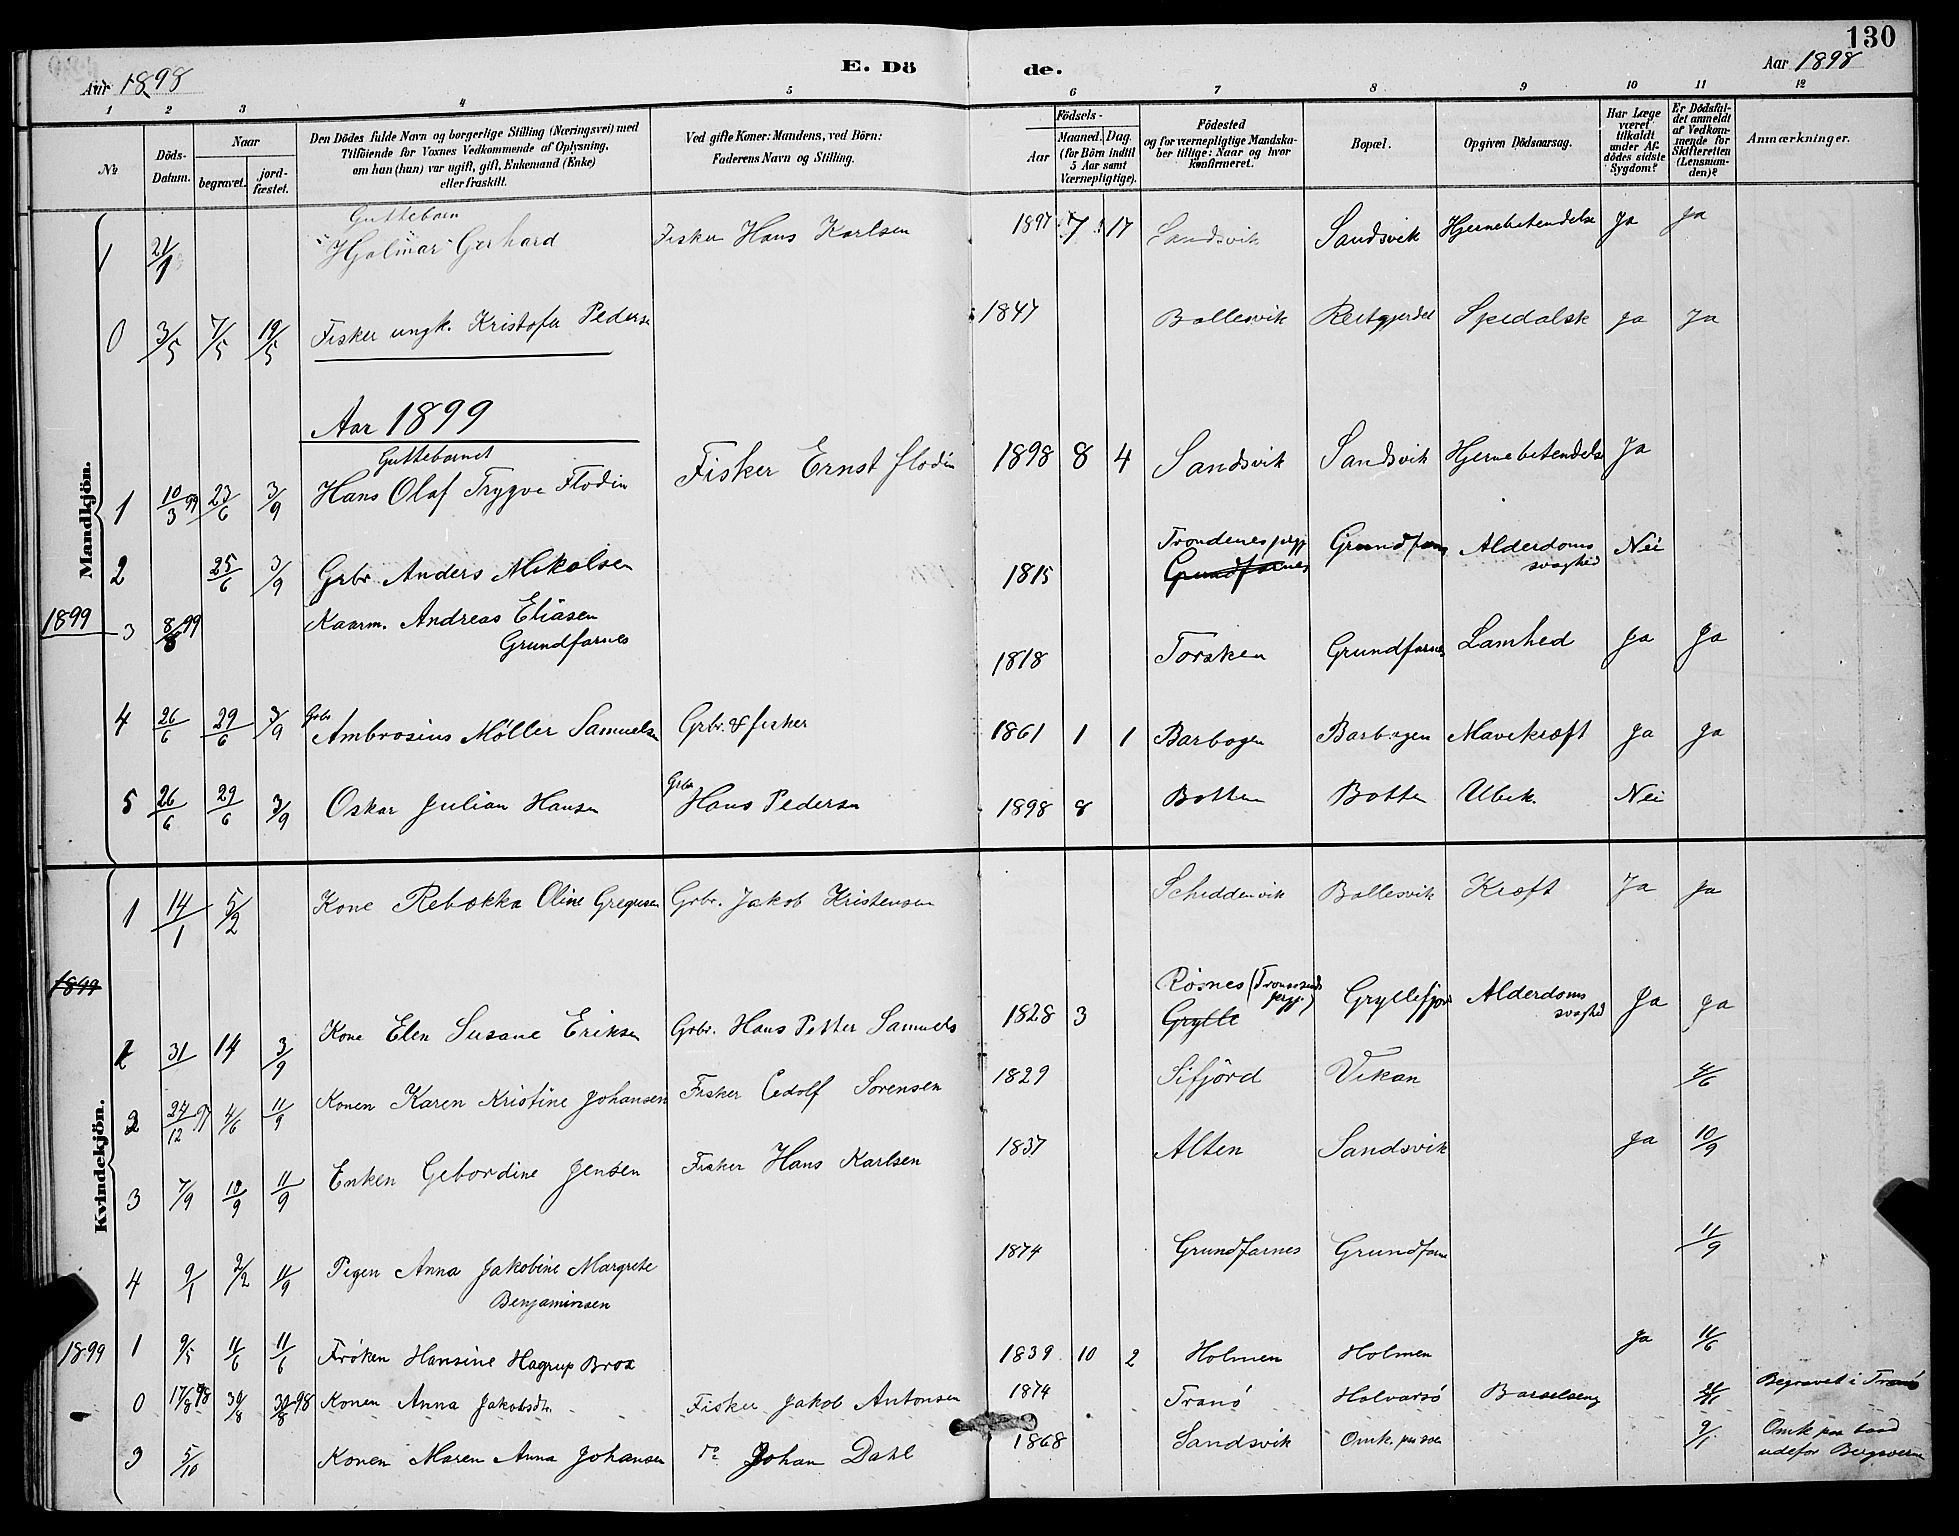 130
Aar 1898
E. Dö
de.
Aar 1898
1 2 3 4 5 6 7 8 9 10 11 12
No
Döds-Datum.
Naar
begravet.
jord-fæstet.
Den Dödes fulde Navn og borgerlige Stilling (Næringsvei) med
Tilföiende for Voxnes Vedkommende af Oplysning,
om han (hun) var ugift, gift, Enkemand (Enke)
eller fraskilt.
Ved gifte Koner: Mandens, ved Börn:
Faderens Navn og Stilling.
Födsels-
Aar
Maaned. Dag.
(for Börn indtil
5 Aar samt
Værnepligtige).
Födested
og for værnepligtige Mandska-
ber tillige: Naar og hvor
konfirmeret.
Bopæl.
Opgiven Dödsaarsag.
Har Læge
været
tilkaldt
under Af-
dödes sidste
Sygdom?
Er Dödsfal-
det anmeldt
af Vedkom-
mende for
Skifteretten
(Lensman-
den)?
Anmærkninger.
Mandkjön.
Guttebarn
1 21/1 Hjalmar Gerhard Fisker Hans Karlsen 1897 7 17 Sandsvik Sandsvik Hjernebetendelse Ja Ja
0 3/5 7/5 19/5 Fisker ungk. Kristofer Peders 1847 Ballesvik Spedalsk Ja Ja
Aar 1899
Guttebarnet
1 10/3 99 23/6 3/9 Hans Olaf Trygve Flodin Fisker Ernst Flodin 1898 8 4 Sandsvik Sandsvik Hjernebetendelse Ja
2 25/6 3/9 Grbr. Anders Mikalsen 1815 Trondenes prgj Grundfarnes Grundfarn Alderdoms svaghed Nei
1899
3 8/8 99 Kaarm. Andreas Eliasen
Grundfarnes 1818 Torsken Grundfarnes Lamhed Ja Ja
4 26/6 29/6 3/9 Grbr Ambrosius Møller Samuelsen Grbr. & fisker 1861 1 1 Barbogen Barbogen Mavekræft Ja Ja
5 26/6 29/6 3/9 Oskar Julian Hansen Grbr Hans Pedersen 1898 8 Botten Botten Ubek. Nei
Kvindekjön.
1 14/1 5/2 Kone Rebækka Oline Gregusen Grbr. Jakob Kristensen Schiddenvik Ballesvik Kræft Ja Ja
1899
2 31 14 3/9 Kone Elen Susane Eriksen Grbr. Hans Petter Samuels 1828 3 Røsnes (Tromsøsunds prgj.) Grylle Gryllefjord Alderdoms svaghed Ja Ja
2 27/12 97 4/6 11/9 Konen Karen Kristine Johansen Fisker Edolf Sørensen 1829 Sifjord Vikan 4/6
3 7/9 10/9 11/9 Enken Gebordine Jensen Fisker Hans Karlsen 1837 Alten Sandsvik Ja 10/9
4 9/1 2/2 11/9 Pigen Anna Jakobine Margrete
Benjaminsen 1874 Grundfarnes Grundfarn 11/9
1899 1 9/5 11/6 11/6 Frøken Hansine Hagrup Brox 1839 10 2 Holmen Holmen Ja 11/6
0 17/8 98 30/8 30/8 98 Konen Anna Jakobsdtr Fisker Jakob Antonsen 1874 Tranø Holvarsø Barselseng Begravet i Tranø
3 5/10 Konen Maren Anna Johansen do Johan Dahl 1868 Sandsvik Omk. paa søen 9/1 Omk paa baad
udefor Bergsøerne